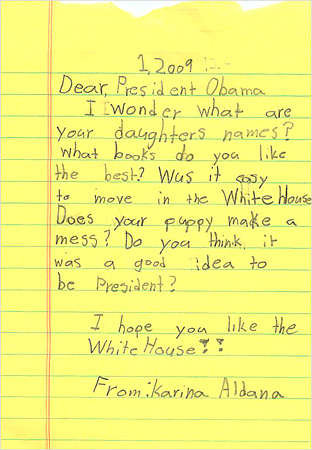 1, 2009
Dear, President Obama
I wonder what are
your daughters names?
What books do you like
the best? Was it easy
to move in the White House
Does your puppy make a
mess? Do you think, it
was a good idea to
be President?
I hope you like the
White House??
From: Karina Aldana